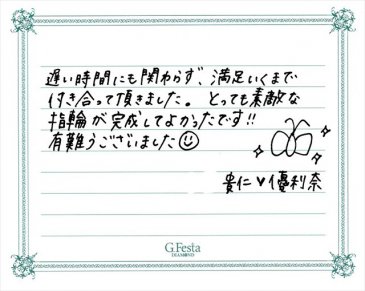 遅い時間にも関わらず、満足いくまで
付き合って頂きました。とっても素敵な
指輪が完成してよかったです!!
有難うございました☺
貴仁♥優利奈
G.Festa
DIAMOND